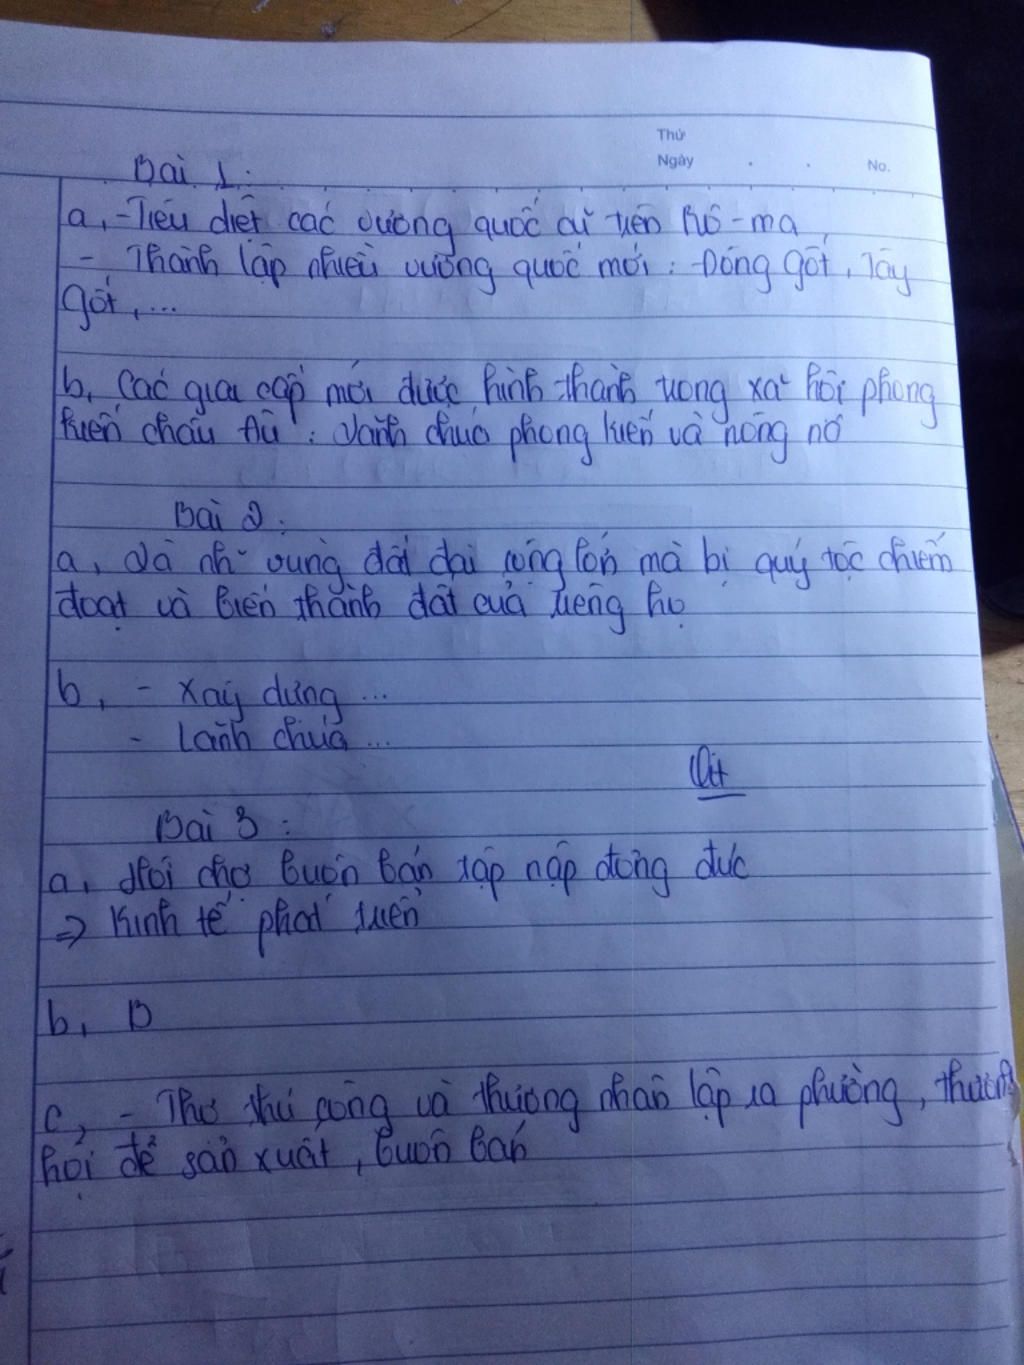 Thứ
Ngày . . No.
Bài 1:
a, - Tiêu diệt các vương quốc cũ trên Rô-ma,
- Thành lập nhiều vương quốc mới: Đông gốt, Tây
gốt, ...
b, Các giai cấp mới được hình thành trong xã hội phong
kiến châu Âu: Lãnh chúa phong kiến và nông nô
Bài 2:
a, Là nh vùng đất đai rộng lớn mà bị quý tộc chiếm
đoạt và biến thành đất của riêng họ
b, - Xây dựng ...
- Lãnh chúa ...
Bài 3:
a, Hội chợ buôn bán tập nập đông đúc
=> Kinh tế phát triển
b, B
c, - Thợ thủ công và thương nhân lập ra phường, thương
hội để sản xuất, buôn bán